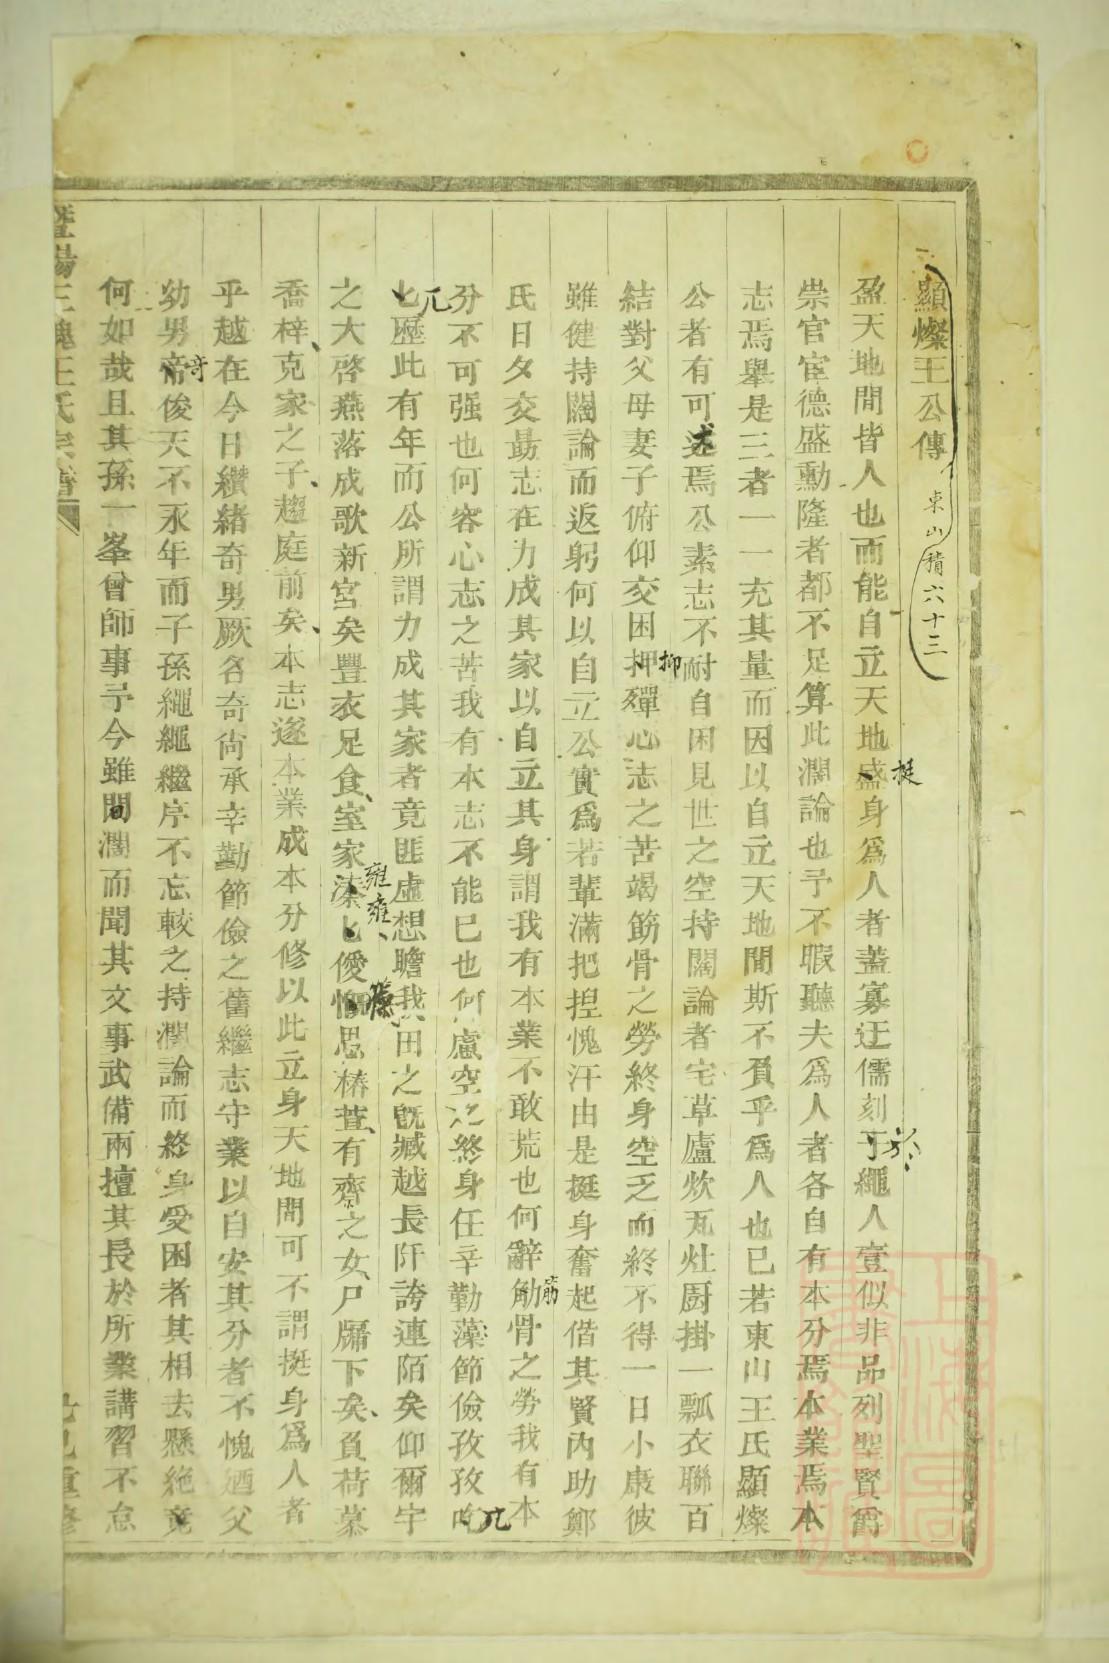 顯燦王公傳 東山積六十三
盈天地間皆人也而能自立天地盛身爲人者蓋寡迂儒刻于繩人壹似非品列聖賢爵
挺
於
崇官宦德盛勳隆者都不足算此濶論也予不暇聽夫爲人者各自有本分焉本業焉本
志焉舉是三者一一充其量而因以自立天地間斯不負乎爲人也已若東山王氏顯燦
公者有可述焉公素志不耐自困見世之空持闊論者宅草廬炊瓦灶厨掛一瓢衣聯百
結對父母妻子俯仰交困押殫心志之苦竭筋骨之勞終身空乏而終不得一日小康彼
抑
雖健持闊論而返躬何以自立公實爲若輩滿把捏愧汗由是挺身奮起偕其賢內助鄭
氏日夕交勗志在力成其家以自立其身謂我有本業不敢荒也何辭觔骨之勞我有本
筋
分不可强也何容心志之苦我有本志不能已也何慮空乏終身任辛勤藻節儉孜孜吃
兀
匕歷此有年而公所謂力成其家者竟匪虛想瞻我田之旣臧越長阡誇連陌矣仰爾宇
兀
之大啓燕落成歌新宮矣豐衣足食室家溱匕僾愾思椿萱有齋之女尸牖下矣負荷慕
雍雍
喬梓克家之子趨庭前矣本志遂本業成本分修以此立身天地間可不謂挺身爲人者
乎越在今日纘緒奇男厥名奇尙承辛勤節儉之舊繼志守業以自安其分者不愧迺父
幼男帝俊天不永年而子孫繩繩繼序不忘較之持濶論而終身受困者其相去懸絶竟
奇
何如哉且其孫一峯曾師事予今雖間濶而聞其文事武備兩擅其長於所業講習不怠
暨陽三槐王氏宗譜
己重修